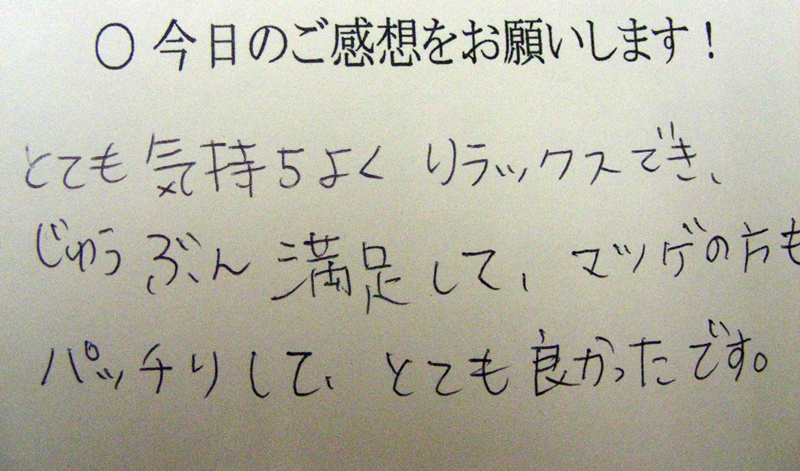 ○ 今日のご感想をお願いします！
とても気持ちよく リラックスでき、
じゅうぶん 満足して、マツゲの方も
パッチリして、とても良かったです。